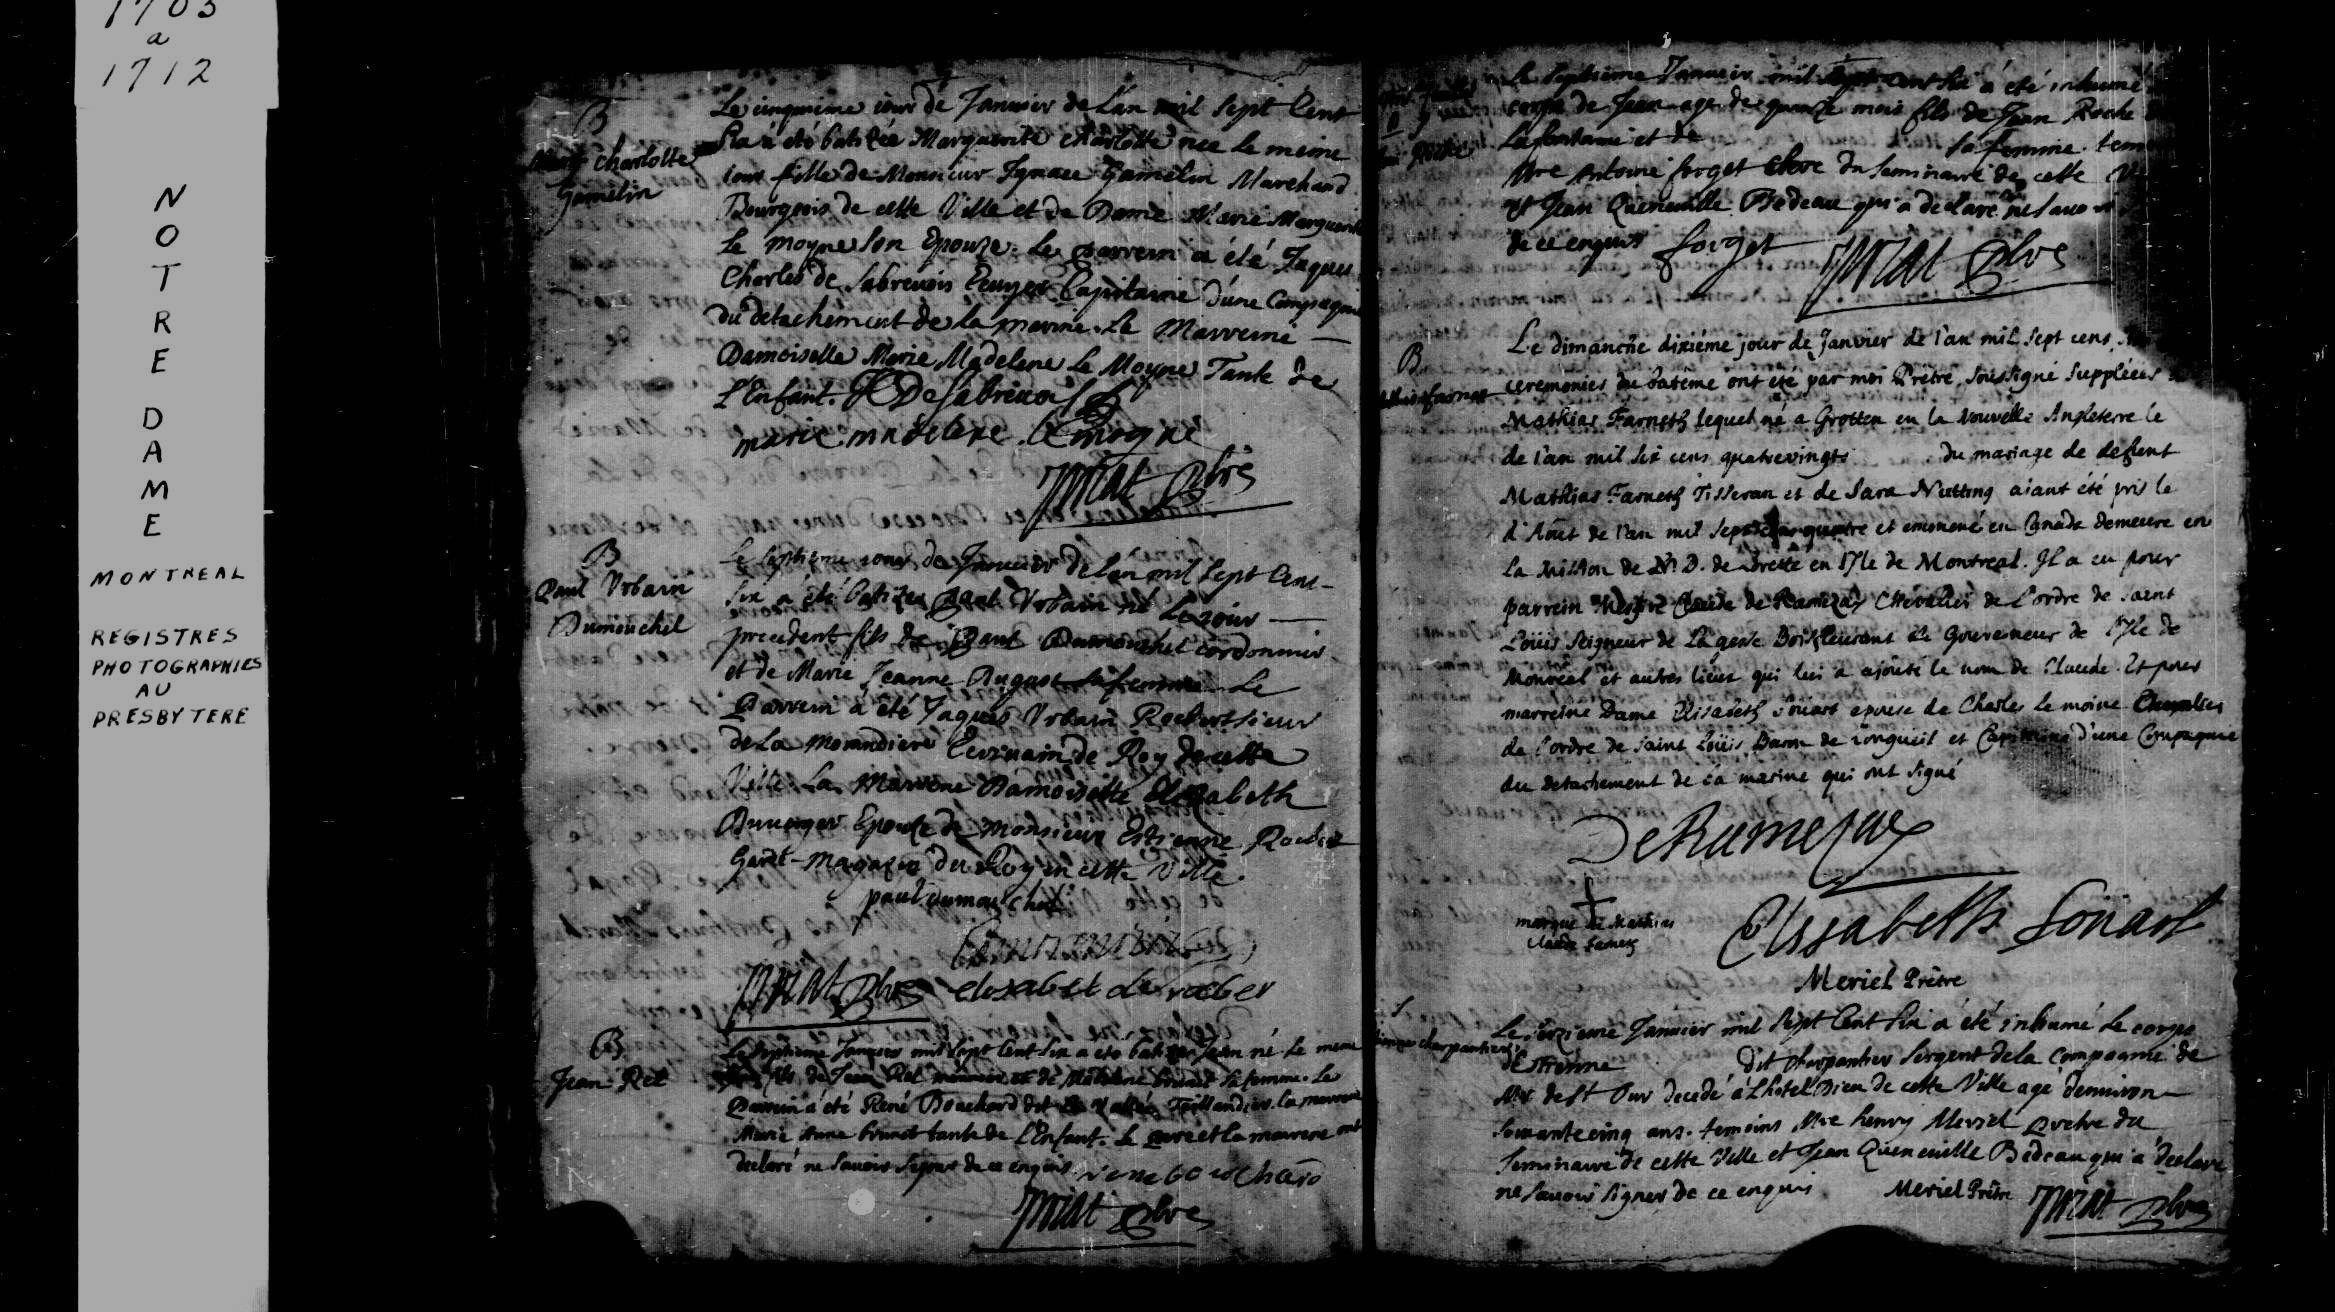 1703
a
1712
NOTRE DAME
MONTREAL
REGISTRES
PHOTOGRAPHIES
AU
PRESBYTERE
B
Charlotte
Gamelin
Le cinquieme iour de Januier de L'an mil sept Cent
Six a été batizée Marguerite charlotte née le meme
iour fille de Monsieur Ignace Gamelin Marchand
Bourgeois de cette Ville et de Dame Marie Marguerite
Le moyne son Epouze. Le parrein a été Jaques
Charles de Sabreuois Ecuyer Capitaine d'une Compagnie
du detachement de la marine. La Marreine
Damoiselle Marie Madelene Le Moyne Tante de
L'Enfant. DeSabreuois
marie madelene Le moyne
priat pbre
B
Paul Vrbain
Dumouchel
Le septieme iour de Januier de L'an mil sept Cent
Six a été batizé Paul Vrbain né Le iour
precedent fils de Paul Dumouchel cordonnier
et de Marie Jeanne August sa femme Le
Parrein a été Jaques Vrbain Robert sieur
de La morandiere Ecriuain de Roy de cette
Ville La Marrene Damoiselle Elizabeth
Epouze de Monsieur Estienne Rocbert
Garde-Magazin du Roy en cette Ville.
paul dumouchel
priat pbre elisabet de rocber
B
Jean Ret
Le septieme Januier mil sept Cent six a été batizé Jean né le meme
fils de Jean Ret et de Madelene brunet sa femme. Le
Parrein a été René Bouchard dit La Vallée Taillandier. la marrene
Marie Anne brunet tante de L'Enfant. Le pere et la marrene ont
declaré ne sauoir signer de ce enquis. rene bouchard
priat pbre
Le septieme Januier mil sept cent six a été inhumé
corps de Jean age de quinze mois fils de Jean Roche
Lafontaine et de sa femme. tem
Mre Antoine forget Clerc du Seminaire de cette
et Jean Queneuille Bedeau qui a declaré ne sauoir
de ce enquis forget priat pbre
B
Le dimanche dixiéme jour de Janvier de l'an mil sept cens
ceremonies du batême ont été par moi Prêtre soussigné suppleées
Mathias Farneth lequel né a Grotten en la Nouvelle Angleterre le
de l'an mil six cens quatrevingt du mariage de defient
Mathias Farneth Tisseran et de Sara Nutting aiant été pris le
d'Aout de l'an mil sept cens quatre et emmené en Canada demeure en
la Mission de N. D. de Lorette en l'Ile de Montreal. Il a eu pour
parrein Messire Claude de Ramezay Chevalier de l'ordre de saint
Loüis Seigneur de La gesse Boisfleurent et Gouverneur de l'Ile de
Montreal et autres lieux qui lui a ajouté le nom de Claude. Et pour
marreine Dame Elisabeth Souart epouse de Charles le moine Chevalier
de l'ordre de saint Loüis Baron de Longueil et Capitaine d'une Compagnie
du detachement de la marine qui ont signé
DeRamezay
marque de Mathias
Claude Farnets
Elisabeth Souart
Meriel Prêtre
S
charpantier
Le Januier mil sept Cent six a été inhumé Le corps
d'Etienne dit charpantier sergent de la Compagnie de
Mr de St Our decedé a L'hotel Dieu de cette Ville agé d'enuiron
soixante cinq ans. temoins Mre henry Meriel pretre du
Seminaire de cette Ville et Jean Queneuille Bedeau qui a declaré
ne sauoir signer de ce enquis Meriel Prêtre priat pbre